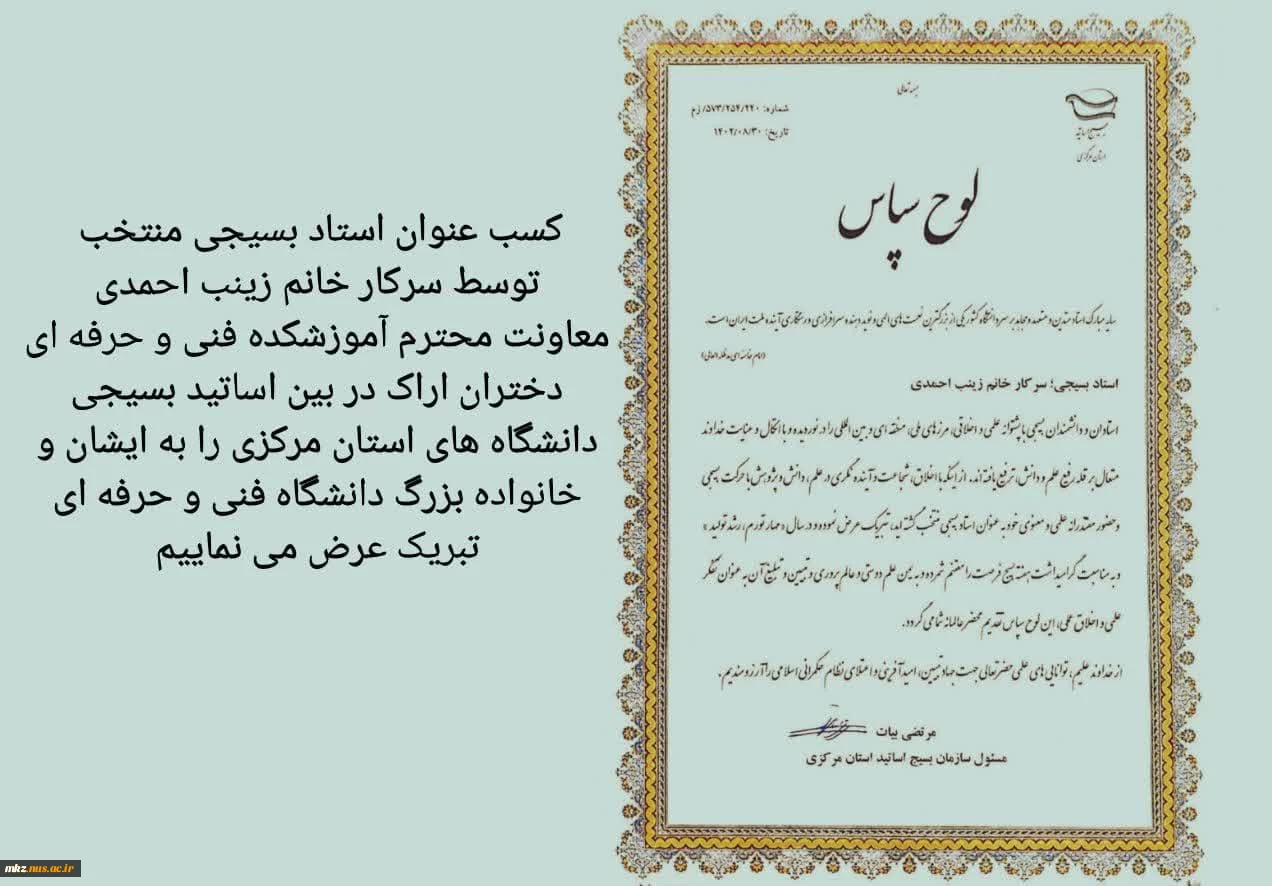 کسب عنوان استاد بسیجی منتخب
توسط سرکار خانم زینب احمدی
معاونت محترم آموزشکده فنی و حرفه ای
دختران اراک در بین اساتید بسیجی
دانشگاه های استان مرکزی را به ایشان و
خانواده بزرگ دانشگاه فنی و حرفه ای
تبریک عرض می نماییم
بسمه تعالی
شماره: ۵۷۳/۲۵۴/۲۲۰/ زم
تاریخ: ۱۴۰۲/۰۸/۳۰
بسیج اساتید
استان مرکزی
لوح سپاس
سایه مبارک استاد متدین و متعهد و مجاهد بر سر دانشگاه کشور یکی از بزرگترین نعمت های الهی و نوید دهنده سرافرازی و رستگاری آینده ملت ایران است.
(امام خامنه ای مدظله العالی)
استاد بسیجی؛ سرکار خانم زینب احمدی
استادان و دانشمندان بسیجی با پشتوانه علمی و اخلاقی، مرزهای ملی، منطقه ای و بین المللی را درنوردیده و با اتکال و عنایت خداوند
متعال بر قله رفیع علم و دانش، ترفیع یافته اند. از اینکه با اخلاق، شجاعت و آینده نگری در علم، دانش و پژوهش با حرکت بسیجی
و حضور مقتدرانه علمی و معنوی خود به عنوان استاد بسیجی منتخب گشته اید، تبریک عرض نموده و در سال « مهار تورم، رشد تولید »
و به مناسبت گرامیداشت هفته بسیج فرصت را مغتنم شمرده و به یمن علم دوستی و عالم پروری و تبیین و تبلیغ آن به عنوان تفکر
علمی و اخلاق عملی، این لوح سپاس تقدیم محضر عالمانه شما می گردد.
از خداوند علیم، توانایی های علمی حضرتعالی جهت جهاد تبیین، امیدآفرینی و اعتلای نظام حکمرانی اسلامی را آرزومندیم.
مرتضی بیات
مسئول سازمان بسیج اساتید استان مرکزی
mkz.nus.ac.ir